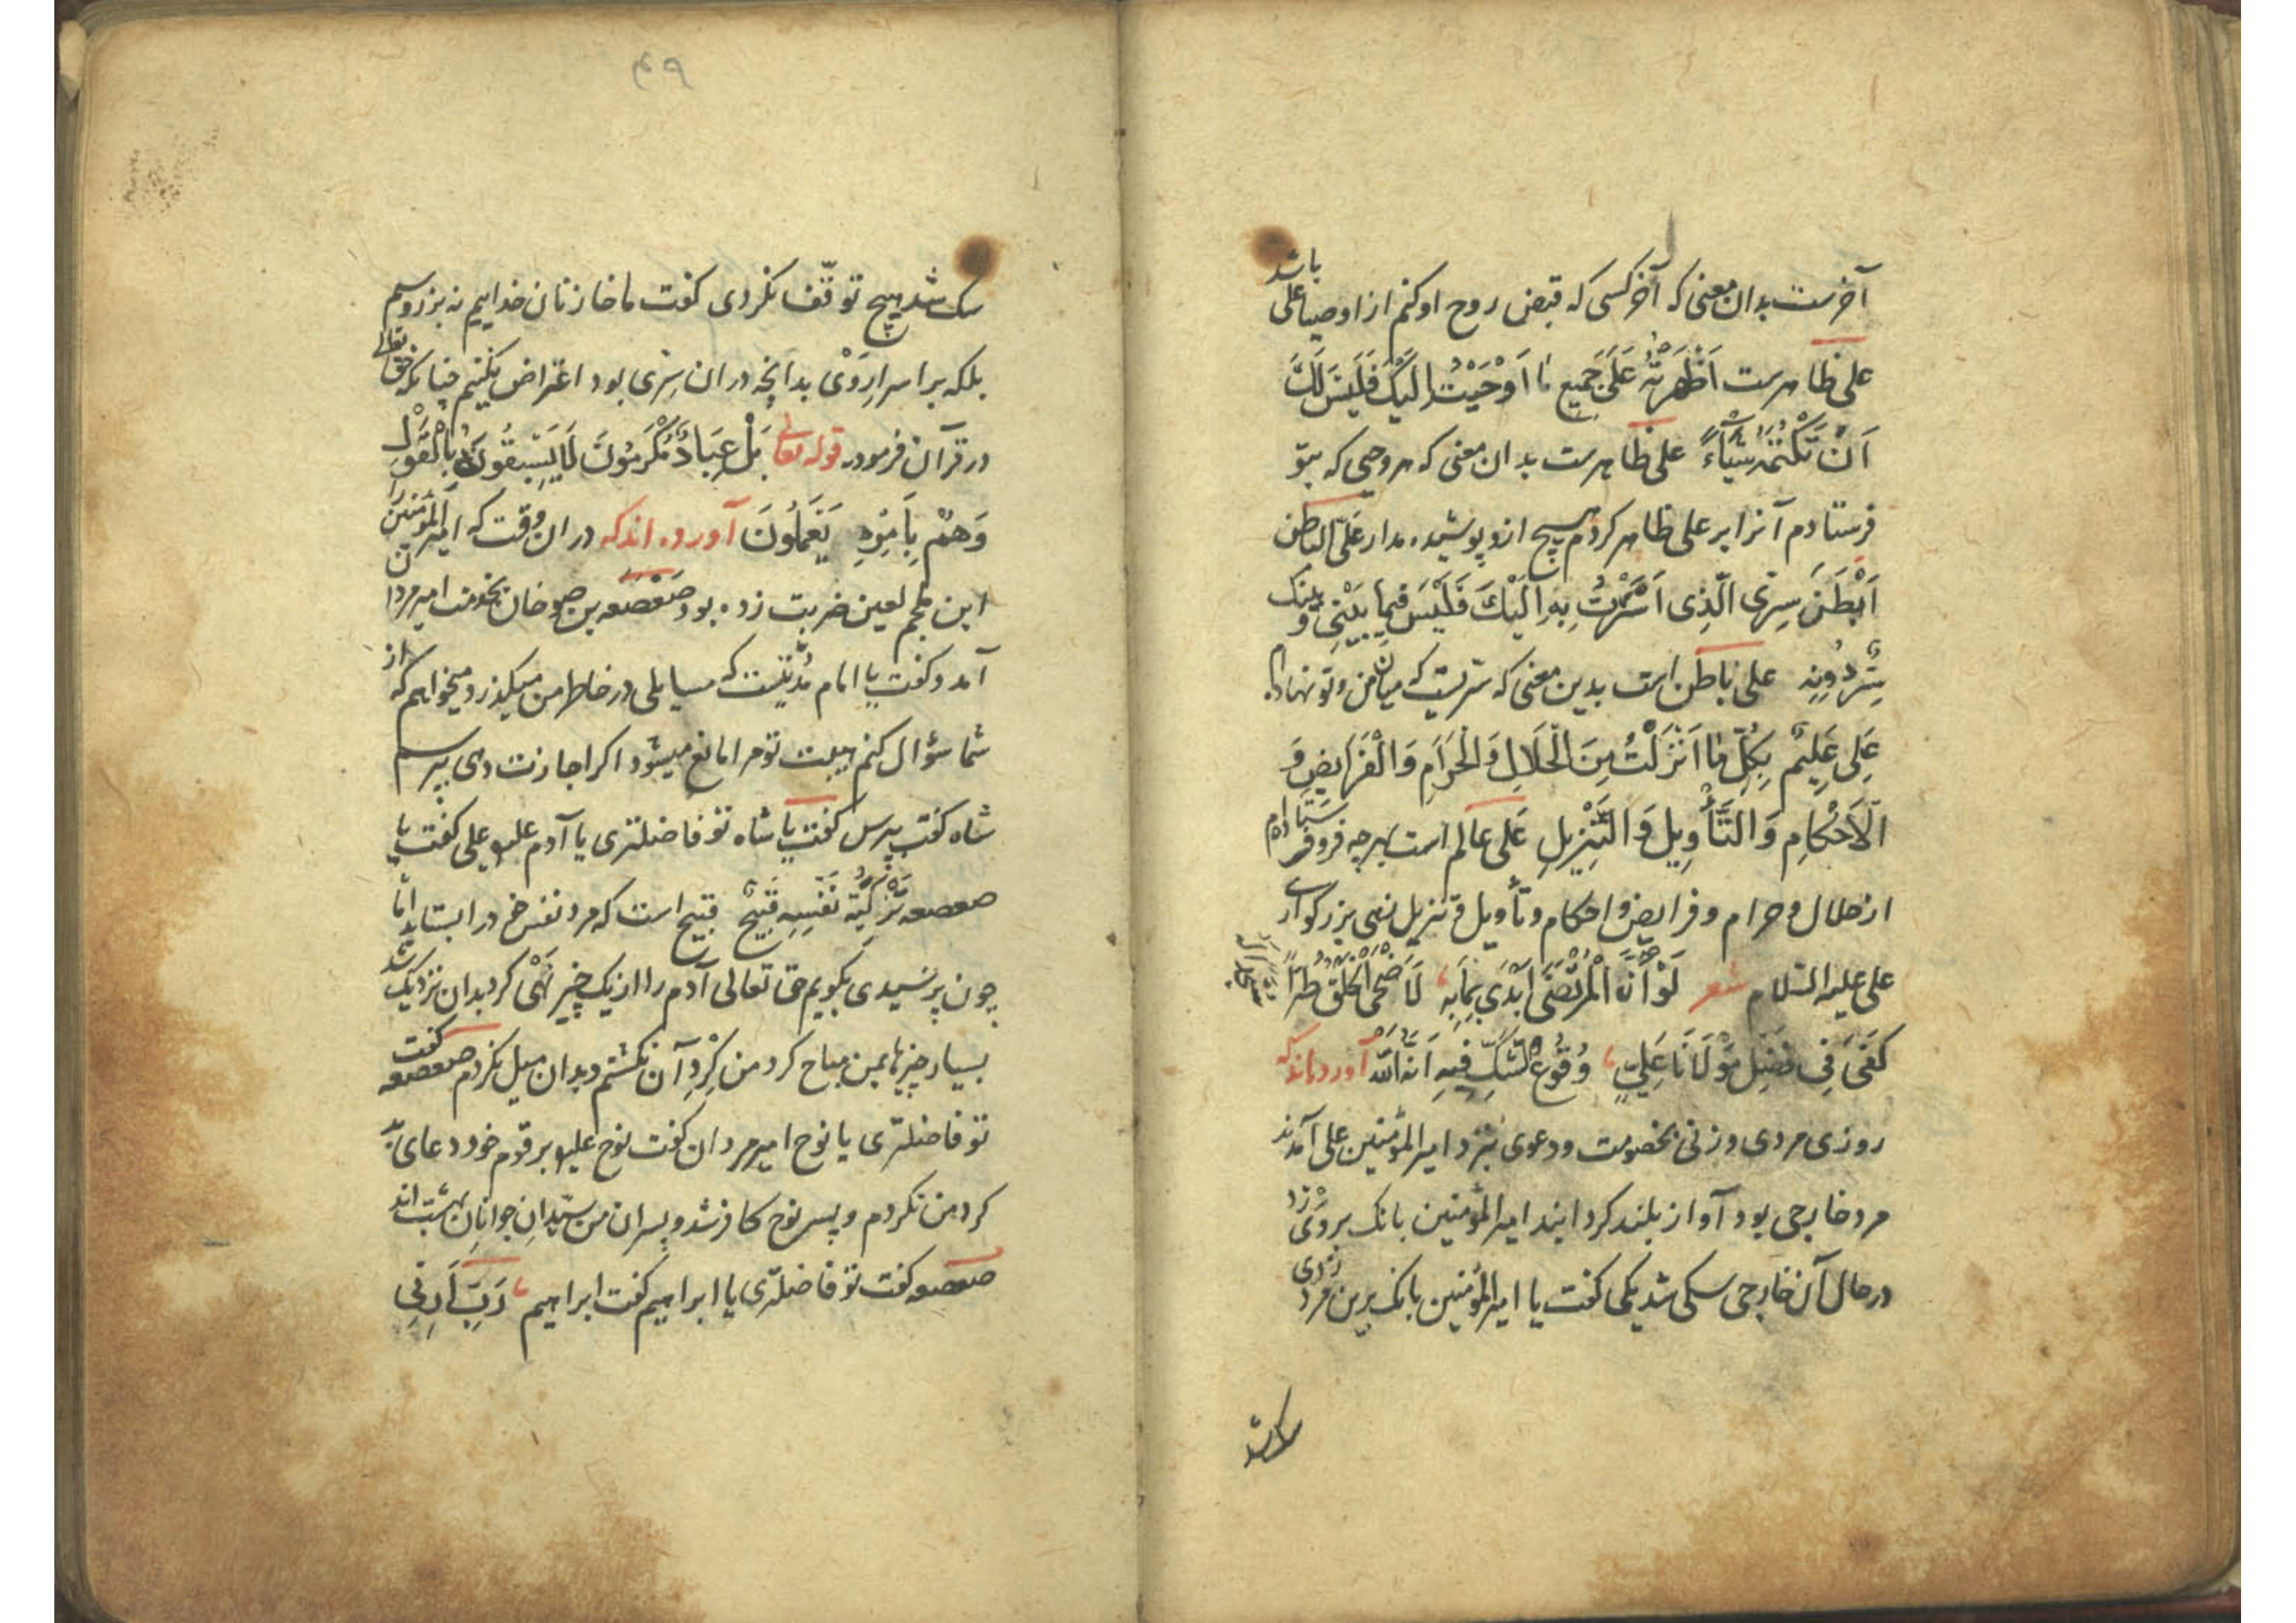 آخرست بدان معنی که آخر کسی که قبض روح او کنم از اوصیا علی باشد
علی ظاهرست اَظْهَرْتُهُ عَلَیَ جَمیعِ مٰا اَوْحَیْتُ اِلَیْکَ فَلَیْسَ لَکَ
اَنْ تَکْتُمَهُ شَیْاءً علی ظاهرست بدان معنی که هر وحیی که بتو
فرستادم آنرا بر علی ظاهر کردم هیچ ازو پوشیده مدار عَلیّ الباطن
اَبْطَنَ سِرّی الَّذی اَسْرَرْتُ بِه اِلَیْکَ فَلَیْسَ فیمٰا بَیْنی وَ بینک
سِرٌّ دُونِه علی باطن است بدین معنی که سرّیست که میان من و تو نهاده
عَلِی عَلِیمٌ بِکُلِّ مٰا اَنْزَلْتُ مِنَ الْحَلَالِ وَالْحَرَامِ وَالْفَرَایِضِ وَ
الْاَحْکَامِ وَالتَّأْوِیلِ وَالتَّنْزِیلِ عَلی عالم است بهر چه فرو فرستادم
از حلال و حرام و فرایض و احکام و تأویل و تنزیل زهی بزرکواری
علی علیه السّلام شعر لَوْ اَنَّ الْمُرْتَضَیَ اَبْدَی بِمَابِهِ لَاَضْحَی الْخَلْقُ طُرّاً
کَفَیَ فِی فَضْلِ مَوْلَانَا عَلِیٍّ وُقُوعُ الشَّکِّ فِیهِ اَنَّهُ اللّٰه آورده‌اند که
روزی مردی و زنی بخصومت و دعوی بنزد امیر المؤمنین علی آمدند
مرد خارجی بود آواز بلند کرد ایند امیر المؤمنین بانک بروی زد
در حال آن خارجی سکی شد یکی کفت یا امیر المؤمنین بانک برین مرد زدی
سک شد
۴۹
سک شد هیچ توقّف نکردی کفت ما خازنان خداییم نه بر زر و سیم
بلکه بر اسرار وَیْ بدانچه در ان سِرّی بود اعتراض نکنیم چنانکه حق تعالی
در قرآن فرمود قوله تعالی بَلْ عِبَادٌ مُکْرَمُونَ لَایَسْبِقُونَهُ بِالْقَوْلِ
وَهُمْ بِاَمْرِهِ یَعْمَلُونَ آورده اند که در ان وقت که امیر المؤمنین را
ابن ملجم لعین ضربت زده بود صَعْصَعه بن صوحان بخدمت امیر مردان
آمد و کفت یا امام مدّتیست که مسایلی در خاطر من میکذرد میخواهم که از
شما سؤال کنم هیبت تو مرا مانع میشود اکر اجازت دهی بپرسم
شاه کفت بپرس کفت یا شاه تو فاضلتری یا آدم علی کفت یا
صعصعه تَزْکِیَةُ نَفْسِهِ قَبیحٌ قبیح است که مرد نفس خود را بستاید امّا
چون پرسیدی بکویم حق تعالی آدم را از یک چیز نَهْی کرد بدان نزدیک شد
بسیار چیزها بمن مباح کرد من کِرْدِ آن نکشتم و بدان میل نکردم صعصعه کفت
تو فاضلتری یا نوح امیر مردان کفت نوح بر قوم خود دعای بد
کرد من نکردم و پسر نوح کافر شد و پسران من سیّدانِ جوانانِ بهشت اند
صعصعه کفت تو فاضلتری یا ابراهیم کفت ابراهیم رَبِّ اَرِنِی